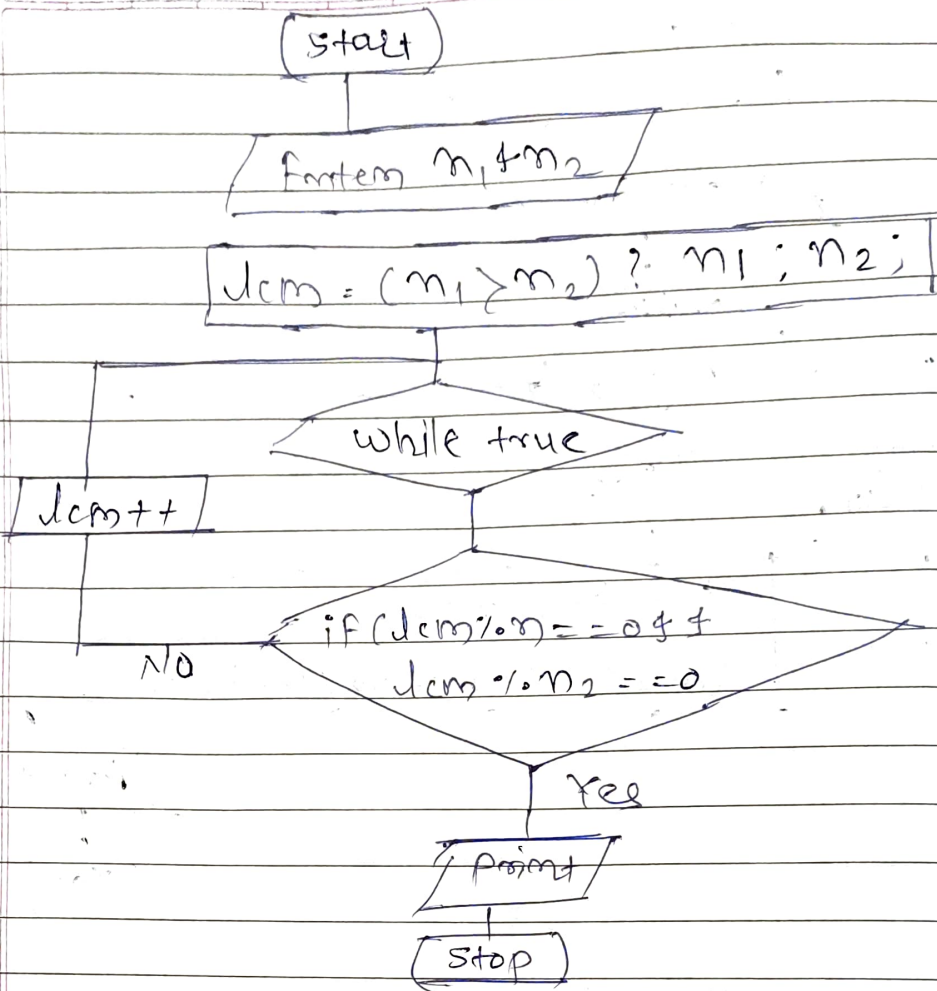 Start
Enter n1 & n2
lcm = (n1 > n2) ? n1 ; n2 ;
while true
lcm++
if (lcm % n == 0 & &
NO
lcm % n2 == 0
Yes
Print
Stop